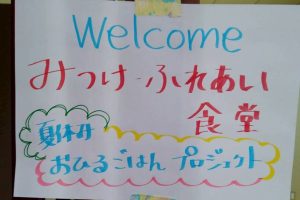 Welcome
みつけ-ふれあい
食堂
夏休み
おひるごはん プロジェクト